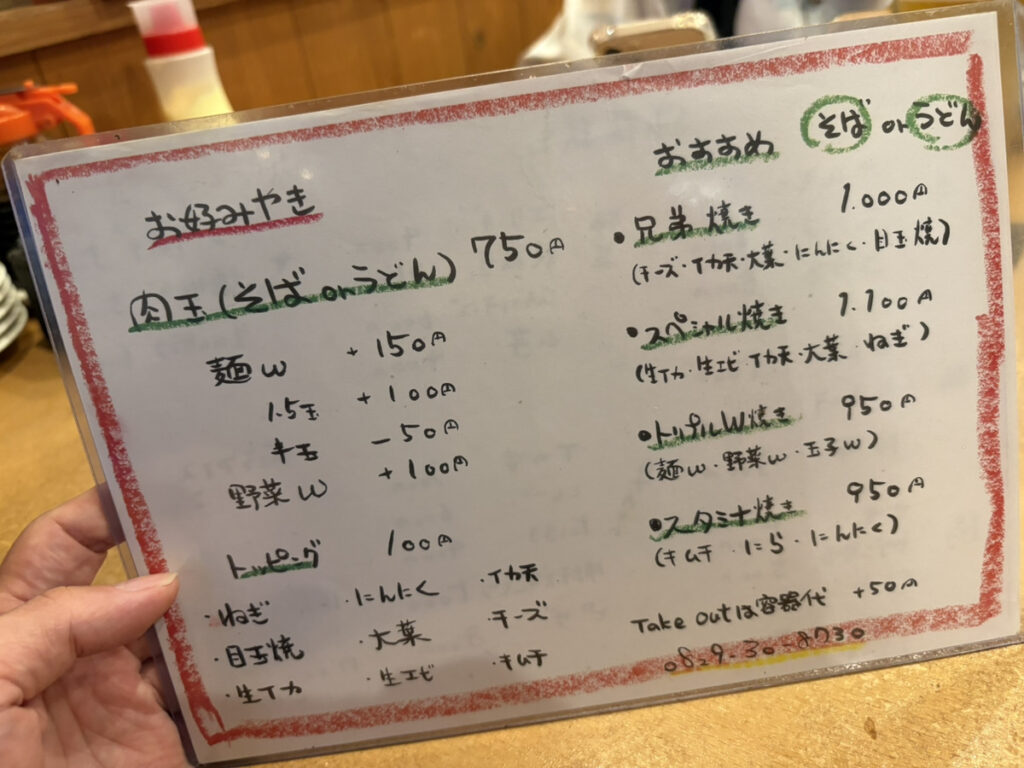 お好みやき
肉玉(そば or うどん) 750円
麺W +150円
1.5玉 +100円
半玉 -50円
野菜W +100円
トッピング 100円
・ねぎ ・にんにく ・イカ天
・目玉焼 ・大葉 ・チーズ
・生イカ ・生エビ ・キムチ
おすすめ そば or うどん
・兄弟焼き 1.000円
(チーズ・イカ天・大葉・にんにく・目玉焼)
・スペシャル焼き 1.100円
(生イカ・生エビ・イカ天・大葉・ねぎ)
・トリプルW焼き 950円
(麺W・野菜W・玉子W)
・スタミナ焼き 950円
(キムチ・にら・にんにく)
Take outは容器代 +50円